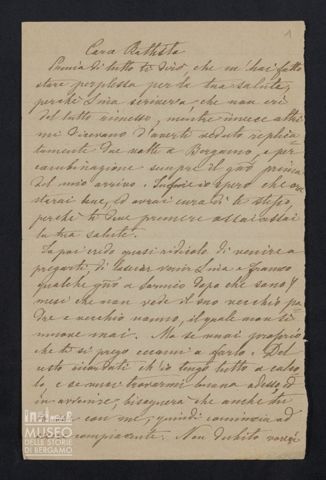 1
Cara Battista
Prima di tutto ti dirò, che m'hai fatto
stare perplessa per la tua salute,
perchè Livia scriveva, che non eri
del tutto rimesso, mentre invece altri
mi dicevano d'averti veduto replica
tamente due volte a Bergamo, e per
combinazione sempre il gno prima
del mio arrivo. Infine io spero che ora
starai bene, ed avrai cura di te stesso,
perchè ti deve premere assai assai
la tua salute.
Io poi credo quasi ridicolo di venire a
pregarti, di lasciar venir Livia e Franco
qualche gno a Sarnico dopo che sono
mesi che non vede il suo vecchio pa
dre e vecchio nonno, il quale non si
muove mai. Ma se mai proprio
che ti si prega eccomi a farlo. Del
resto ricordati ch'io tengo tutto a calco
lo, e se vuoi trovarmi buona adesso, ed
in avvenire, bisognerà che anche tu
con me, quindi comincia ad
compiacente. Non dubito vorrai
MUSEO
DELLE STORIE
DI BERGAMO